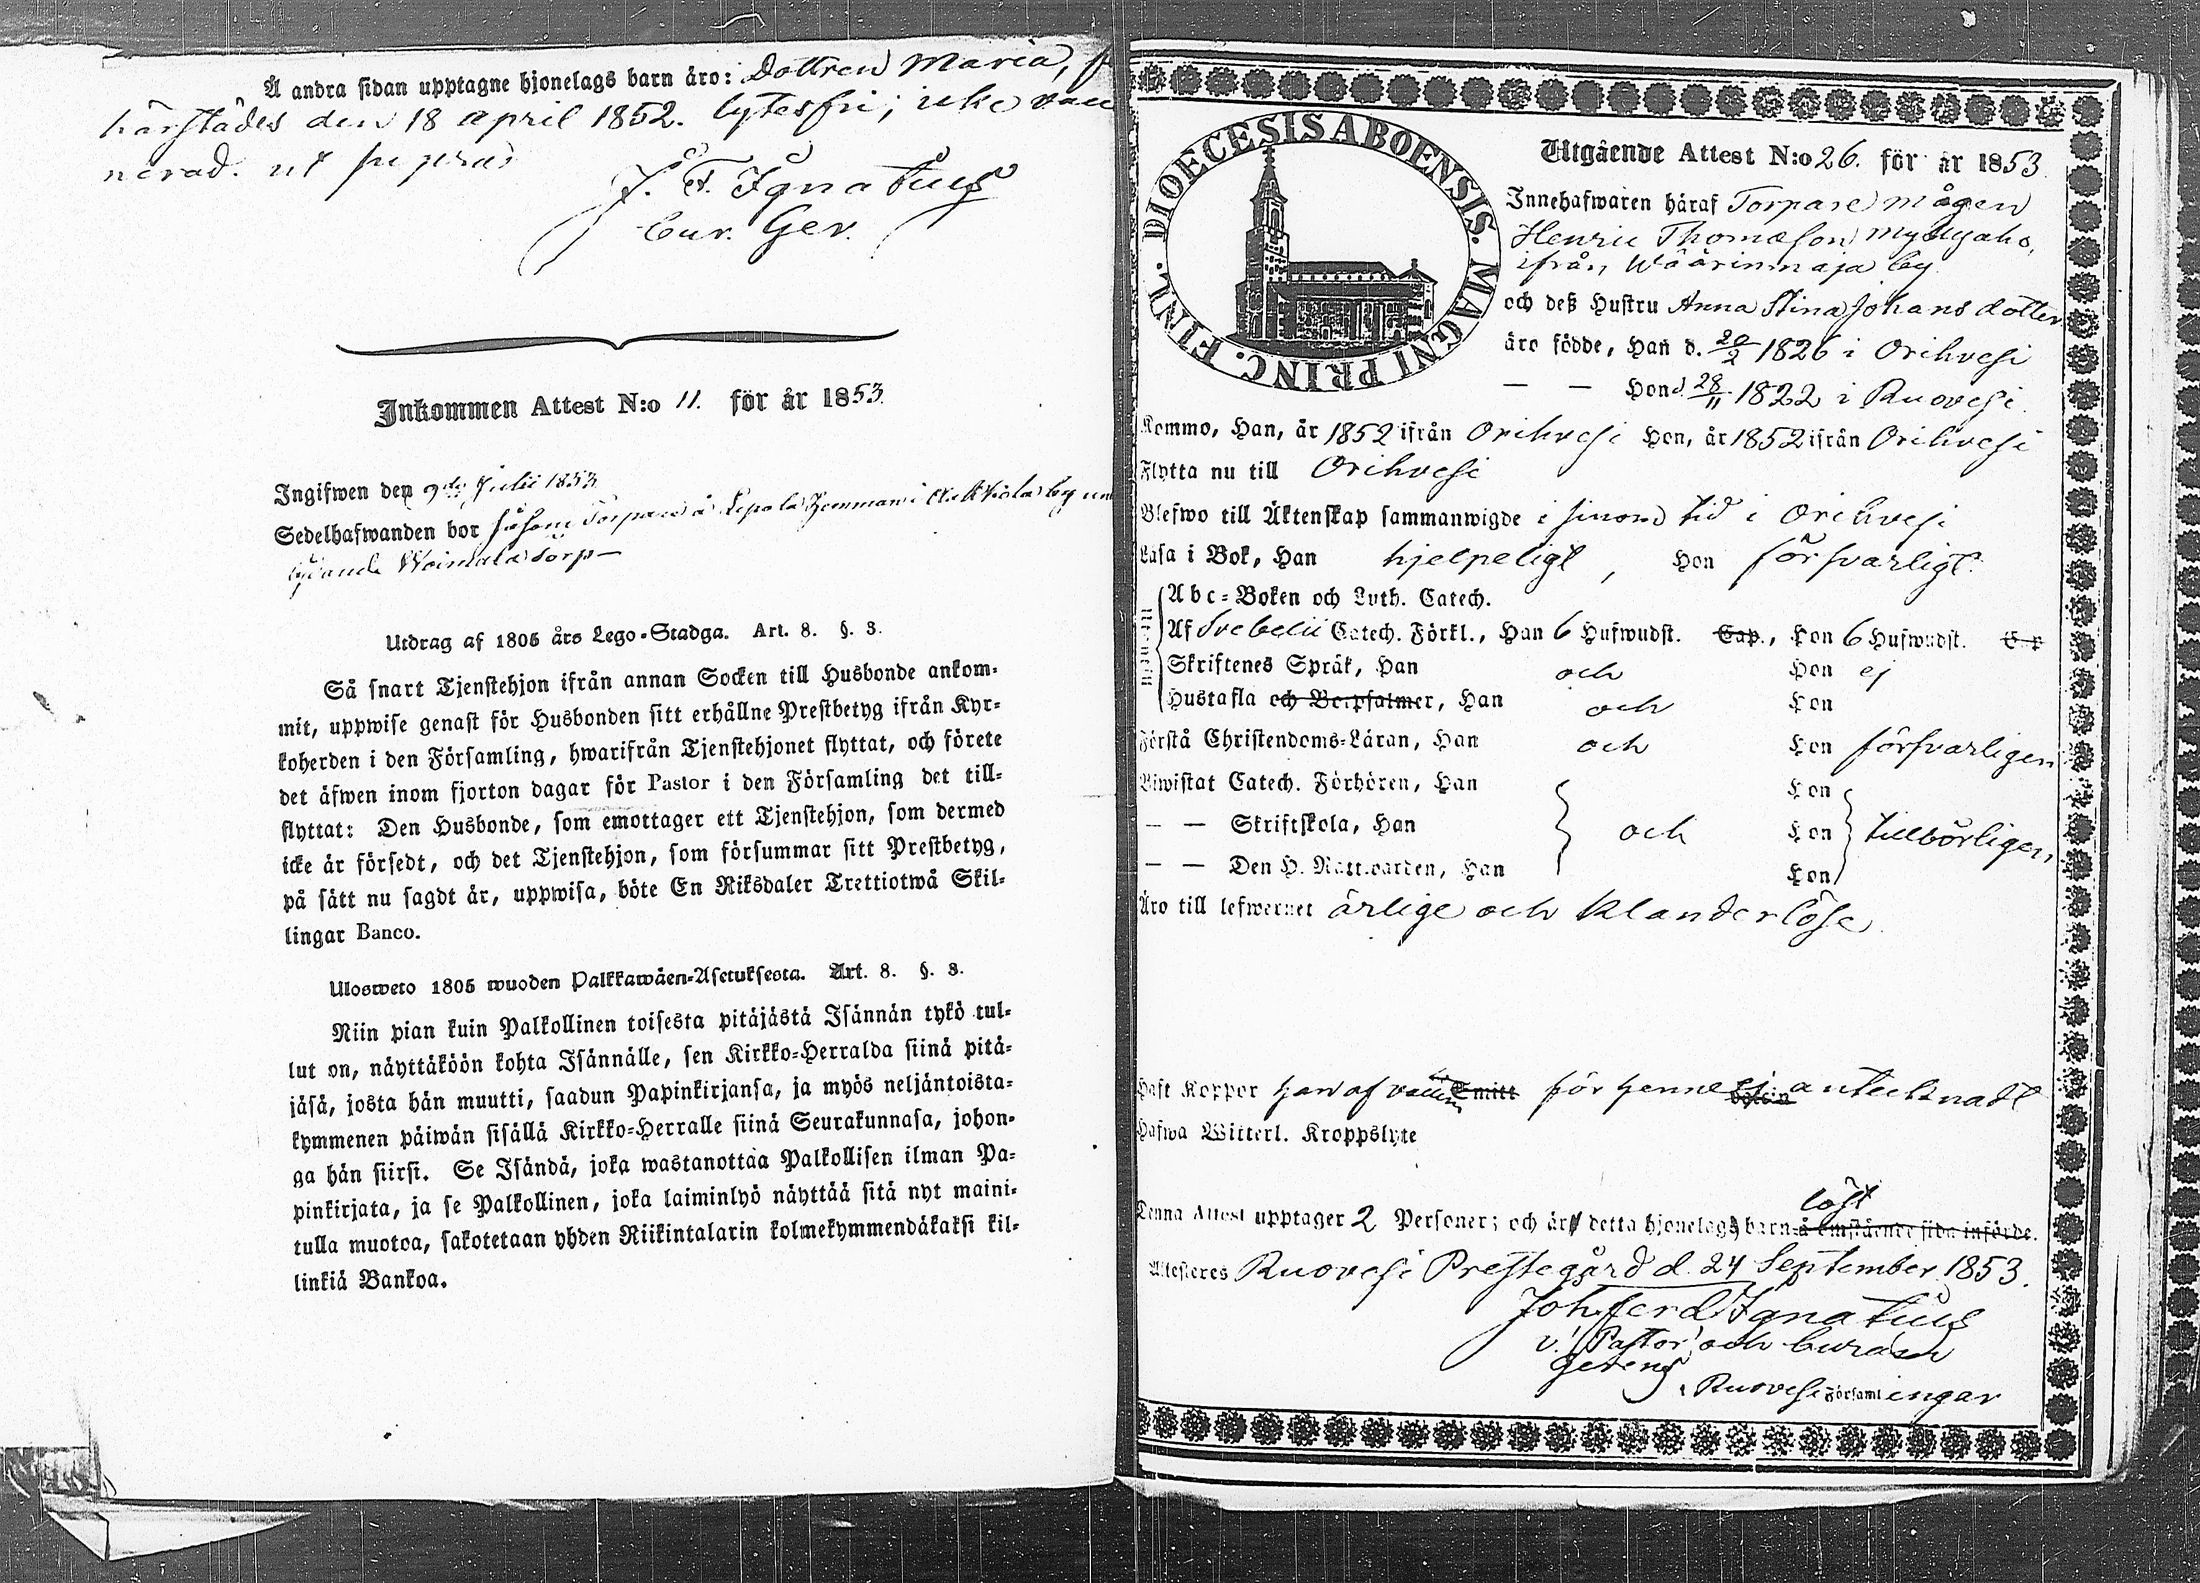 Å andra sidan upptagne hjonelags barn äro: Dottren Maria,
härstädes den 18 april 1852. lytesfri; icke vacci
nerad. ut supra
J. F. Ignatius
Cur. Ger.
Inkommen Attest N:o 11. för år 1853.
Ingifwen den 9de Julii 1853
Sedelhafwanden bor såsom Torpare å Lepola Hemman i by
lydande torp
Utdrag af 1805 års Lego-Stadga. Art. 8. §. 3.
Så snart Tjenstehjon ifrån annan Socken till Husbonde ankom-
mit, uppwise genast för Husbonden sitt erhållne Prestbetyg ifrån Kyr-
koherden i den Församling, hwarifrån Tjenstehjonet flyttat, och förete
det äfwen inom fjorton dagar för Pastor i den Församling det till-
flyttat: Den Husbonde, som emottager ett Tjenstehjon, som dermed
icke är försedt, och det Tjenstehjon, som försummar sitt Prestbetyg,
på sätt nu sagdt är, uppwisa, böte En Riksdaler Trettiotwå Skil-
lingar Banco.
Ulosweto 1805 wuoden Palkkawäen-Asetuksesta. Art. 8. §. 3.
Niin pian kuin Palkollinen toisesta pitäjästä Isännän tykö tul-
lut on, näyttäköön kohta Isännälle, sen Kirkko-Herralda siinä pitä-
jäsä, josta hän muutti, saadun Papinkirjansa, ja myös neljäntoista-
kymmenen päiwän sisällä Kirkko-Herralle siinä Seurakunnasa, johon-
ga hän siirsi. Se Isändä, joka wastanottaa Palkollisen ilman Pa-
pinkirjata, ja se Palkollinen, joka laiminlyö näyttää sitä nyt maini-
tulla muotoa, sakotetaan yhden Riikintalarin kolmekymmendäkaksi kil-
linkiä Bankoa.
DIOECESIS ABOENSIS. MAGNI PRINC. FINL.
Utgående Attest N:o 26. för år 1853.
Innehafwaren häraf Torpare mågen
Henric Thomasson Myllyaho,
ifrån Wäärinmaja by
och deß Hustru Anna Stina Johansdotter
äro födde, Han d. 20/2 1826 i Orihvesi
— — Hon d. 28/11 1822 i Ruovesi.
Kommo, Han, år 1852 ifrån Orihvesi Hon, år 1852 ifrån Orihvesi
Flytta nu till Orihvesi
Blefwo till Äktenskap sammanwigde i sinom tid i Orihvesi
Läsa i Bok, Han hjelpeligt, Hon försvarligt
Abc-Boken och Luth. Catech.
Af Svebelii Catech. Förkl., Han 6 Hufwudst. Cap., Hon 6 Hufwudst. Cap
Skriftenes Språk, Han och Hon ej
Hustafla och Botpsalmer, Han och Hon
Förstå Christendoms-Läran, Han och Hon försvarligen
Biwistat Catech. Förhören, Han Hon
— — Skriftskola, Han och Hon tillbörligen
— — Den H. Nattwarden, Han Hon
Äro till lefwernet ärlige och klanderlöse
Haft Koppor han af vaccin för henne ej antecknadt
Hafwa Witterl. Kroppslyte
löst
Denna Attest upptager 2 Personer; och är detta hjonelag barn å omstående sida införde.
Attesteres Ruovesi Prestegård d. 24 September 1853.
Joh Ferd Ignatius
V. Pastor och Curam
Gerens
i Ruovesi Församlingar